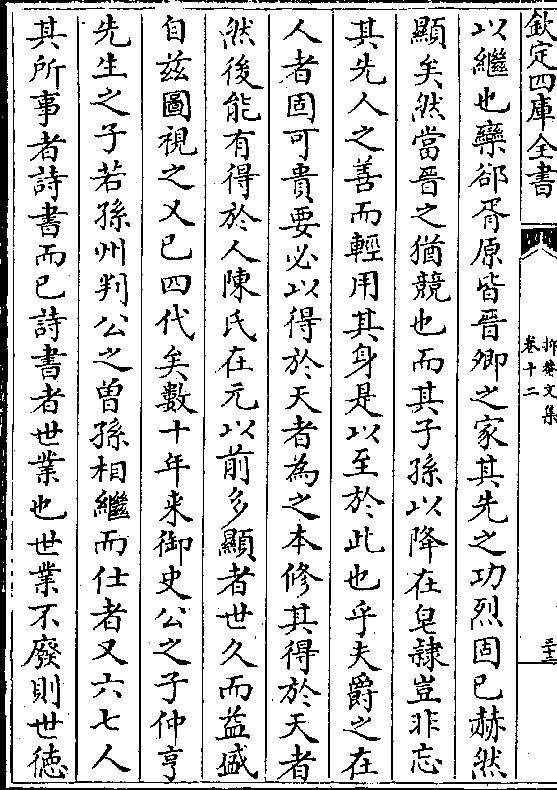 欽定四庫全書
抑菴文集
卷十二
三十二
以繼也欒郤胥原皆晉卿之家其先之功烈固已赫然
顯矣然當晉之猶競也而其子孫以降在皂隸豈非忘
其先人之善而輕用其身是以至於此也乎夫爵之在
人者固可貴要必以得於天者為之本修其得於天者
然後能有得於人陳氏在元以前多顯者世久而益盛
自兹圖視之又已四代矣數十年来御史公之子仲亨
先生之子若孫州判公之曾孫相繼而仕者又六七人
其所事者詩書而已詩書者世業也世業不廢則世徳